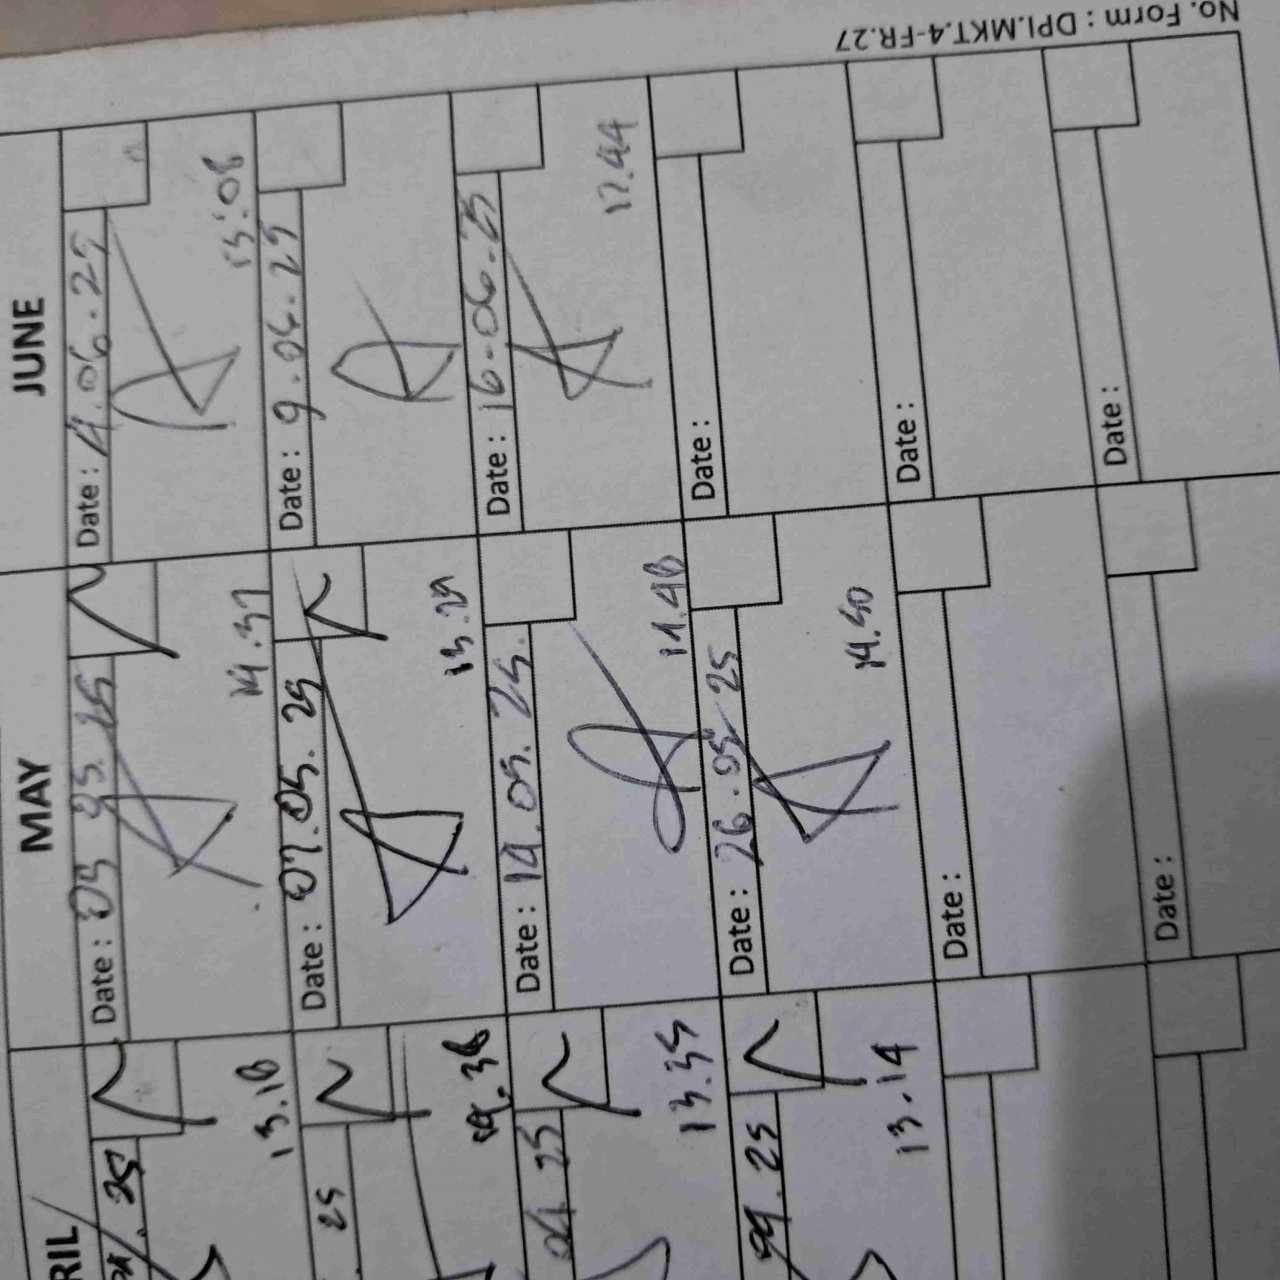 No. Form : DPI.MKT.4-FR.27
RIL
25
13.18
25
19.38
04. 25
13.35
25
13.14
MAY
Date : 03 05. 25
14.37
Date : 07.05. 25
13.29
Date : 14.05.25.
11.48
Date : 26.05 25
14.50
Date :
Date :
JUNE
Date : 4.06.25
13:08
Date : 9.06.25
Date : 16-06.25
17.44
Date :
Date :
Date :